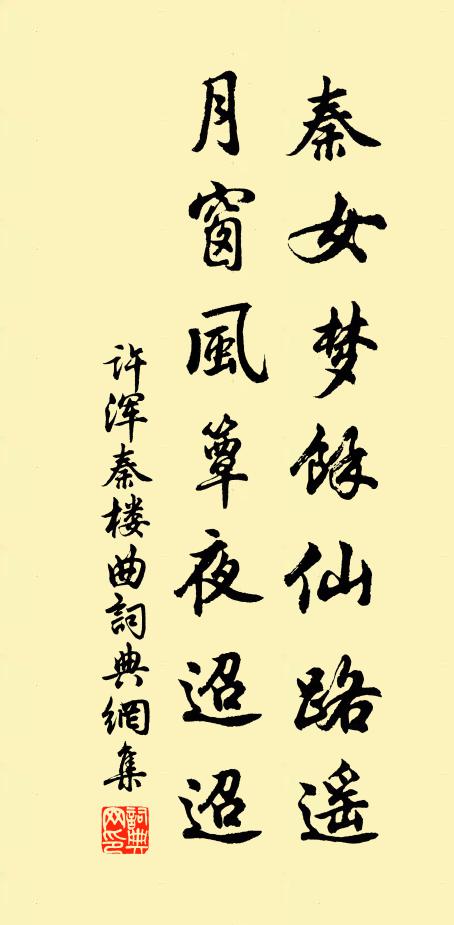 秦女梦餘仙路遥
月窗風簟夜迢迢
许浑秦楼曲詞典網集
詞典網印